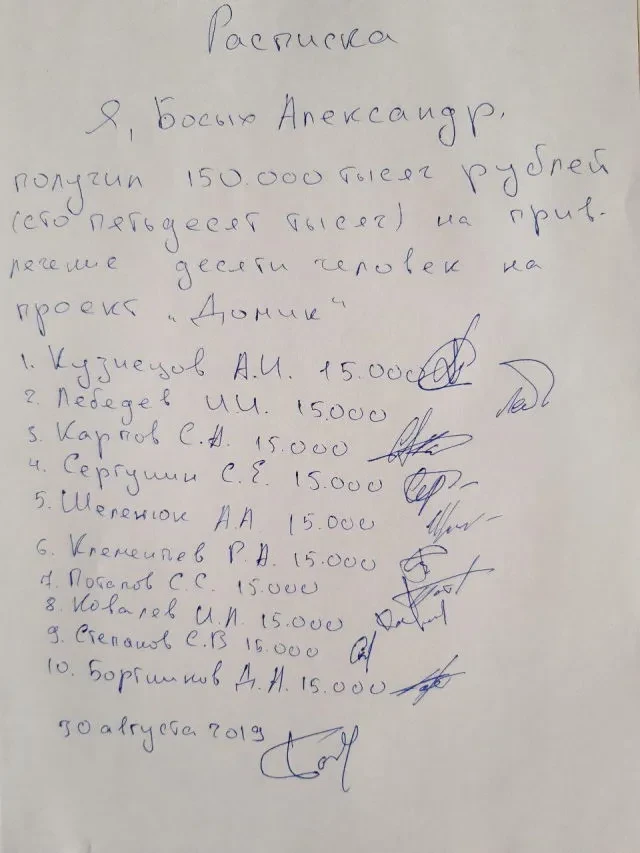 Расписка
Я, Босых Александр,
получил 150.000 тысяч рублей
(сто пятьдесят тысяч) на прив-
лечение десяти человек на
проект „Домик“
1. Кузнецов А.И. 15.000
2. Лебедев И.И. 15.000
3. Карпов С.А. 15.000
4. Сергушин С.Е. 15.000
5. Шеленюк А.А 15.000
6. Клементьев Р.А. 15.000
7. Потапов С.С. 15.000
8. Ковалев И.Л. 15.000
9. Степанов С.В 15.000
10. Бортников Д.А. 15.000
30 августа 2019